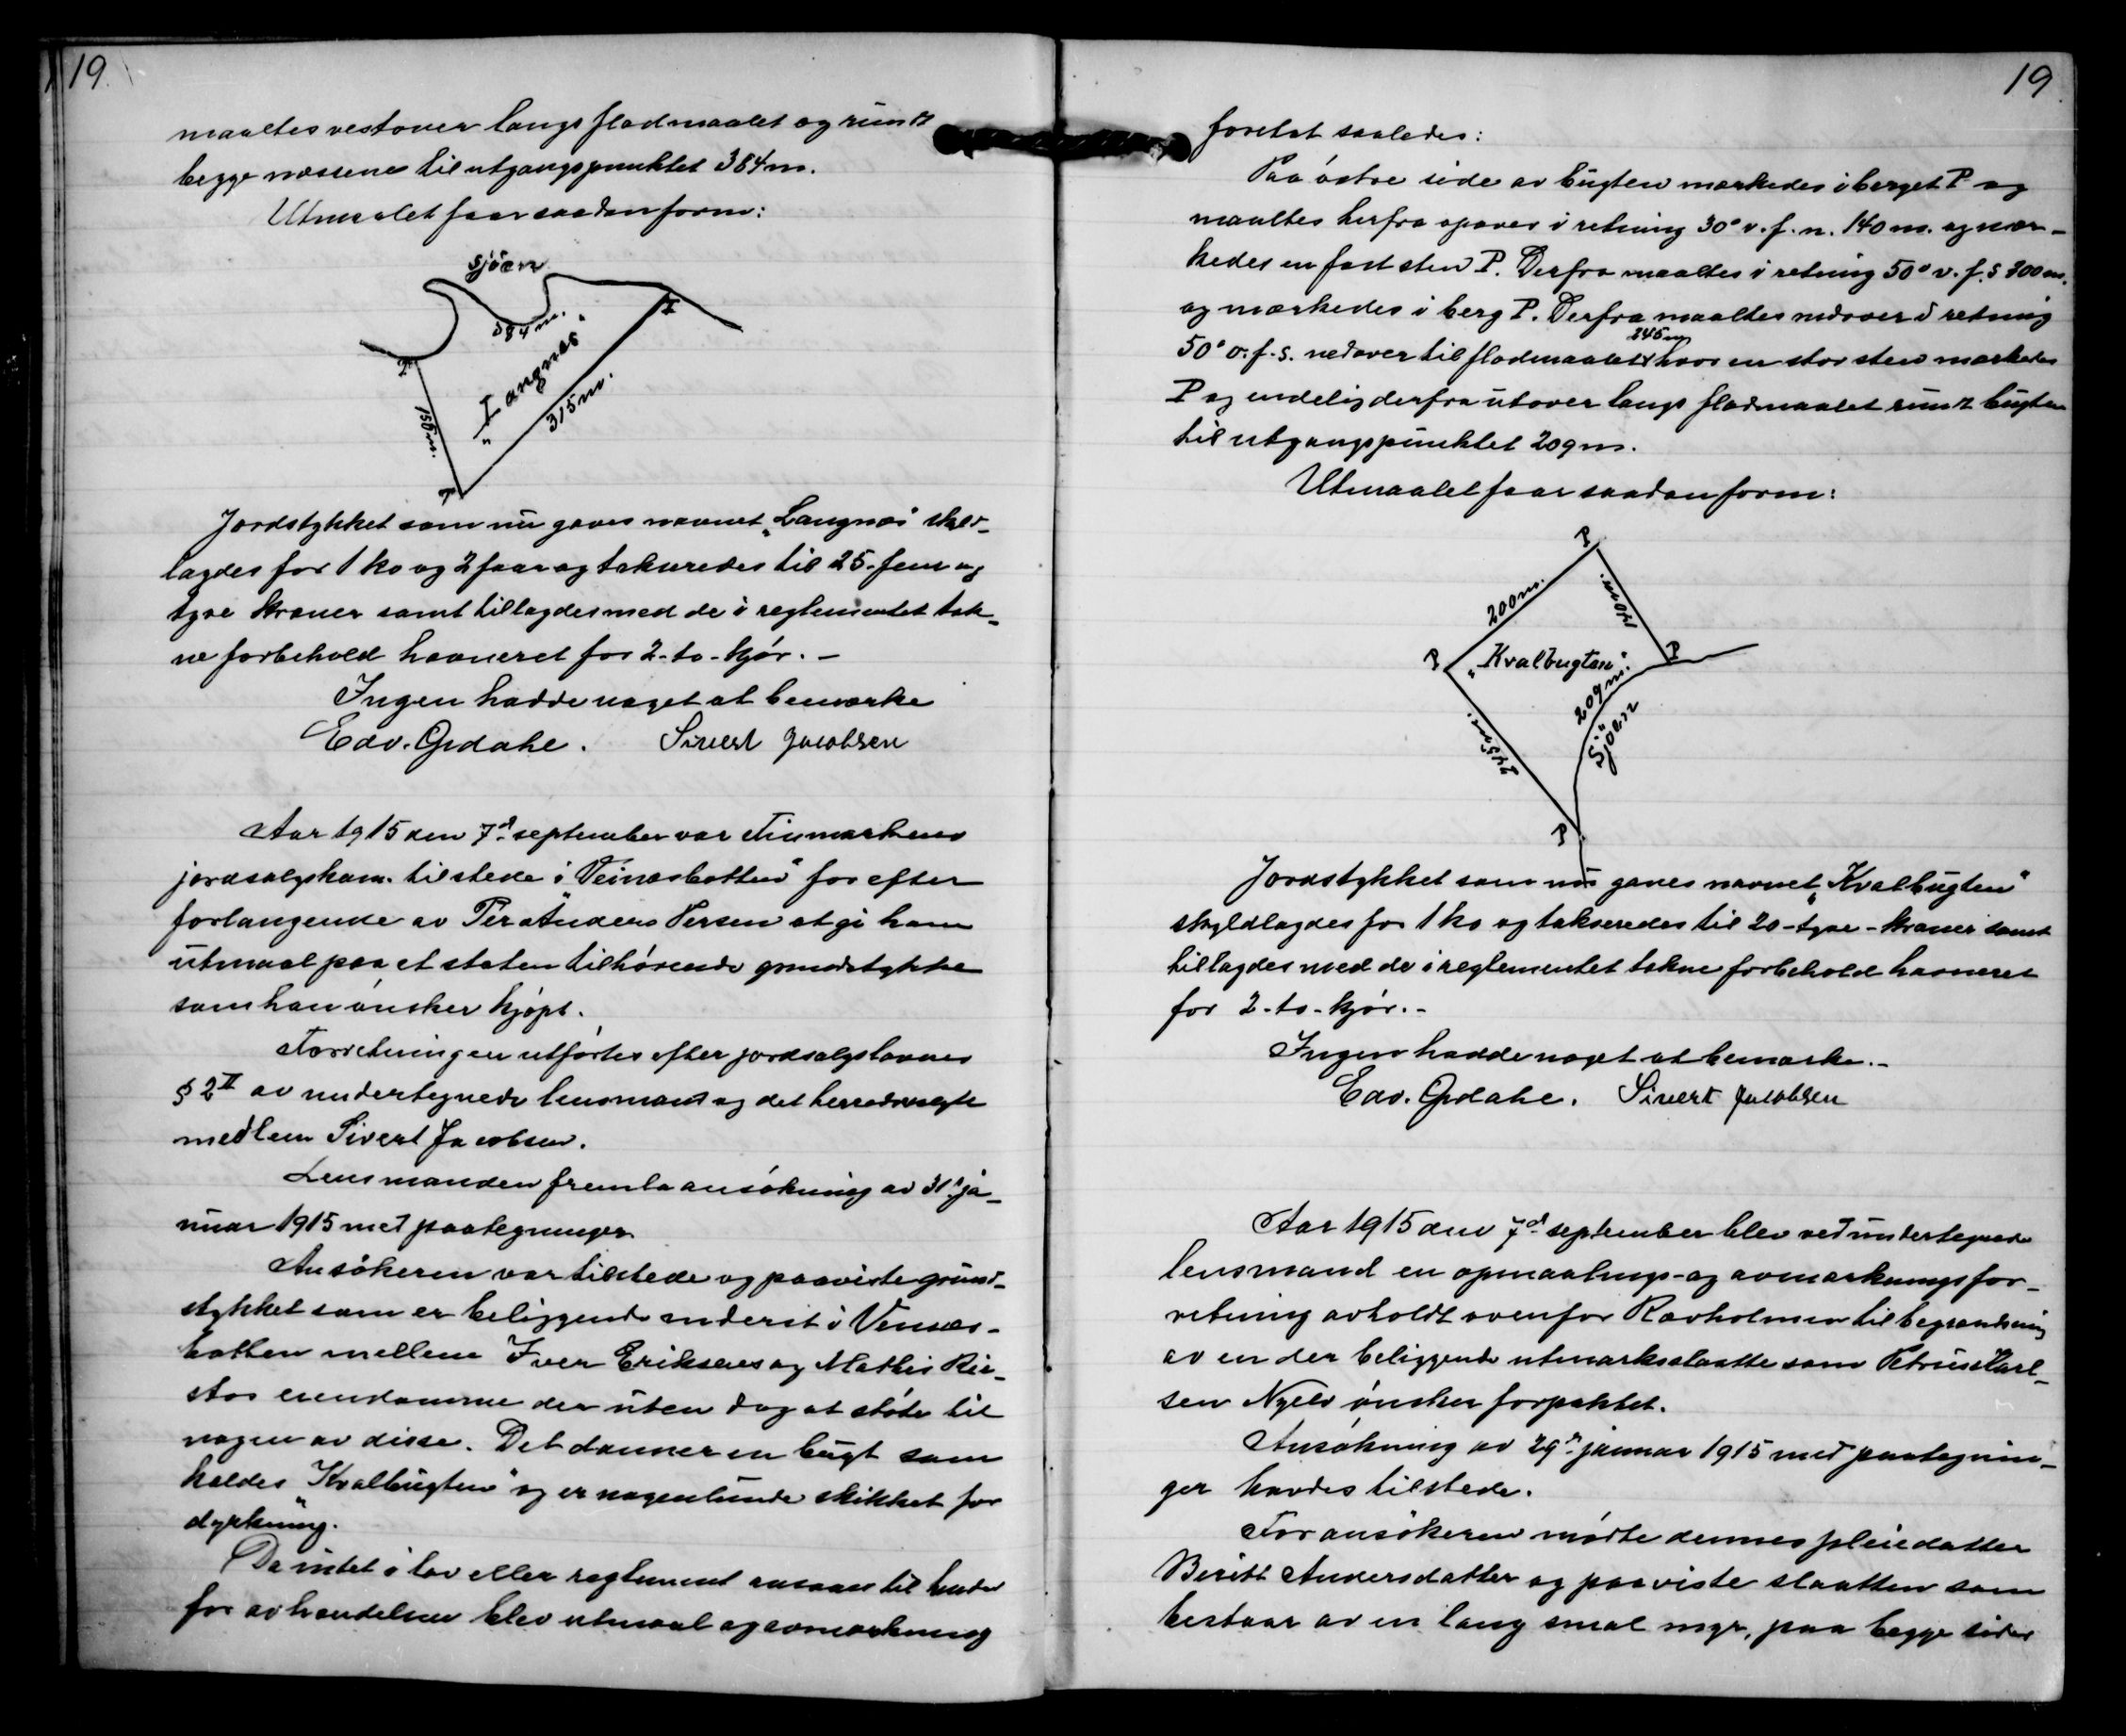 19
maaltes vestover langs flodmaalet og rundt
begge næssene til utgangspunktet 384 m.
Utmaalet faar saadan form:
Sjöen
384 m.
I
I
"Langnes"
150 m.
315 m.
I
Jordstykket som nu gaves navnet "Langnes" skyld-
lagdes for 1 ko og 2 faar og takseredes til 25-fem og
tyve kroner samt tillagdes med de i reglementet tak-
ne forbehold havneret for 2-to-kjör. -
Ingen hadde noget at bemerke
Edv. Opdahl. Sivert Jacobsen
Aar 1915 den 7d september var Finmarkens
jordsalgskom. tilstede i "Veinesbotten" for efter
forlangende av Per Anders Persen at gi ham
utmaal paa et staten tilhörende grundstykke
som han önsker kjöpt.
Forretningen utförtes efter jordsalgslovens
§ 2 II av undertegnede lensmand og det herredsvalgte
medlem Sivert Jacobsen.
Lensmanden fremla ansökning av 31' ja-
nuar 1915 med paategninger
Ansökeren var tilstede og paaviste grund-
stykket som er beliggende inderst i Veines-
botten mellem Iver Eriksens og Mathis
eiendomme der uten dog at stöte til
nogen av disse. Det danner en bugt som
kaldes "Kvalbugten" og er nogenlunde skikket for
dyrkning.
Da intet i lov eller reglement ansaaes til hinder
for avhændelsen blev utmaal og avmerkning
19
foretat saaledes:
Paa östre side av bugten merkedes i berget P og
maaltes herfra opover i retning 30° v.f.n. 140 m. og mer-
kedes en fast sten P. Derfra maaltes i retning 50° v.f.s 200 m.
og merkedes i berg P. Derfra maaltes nedover i retning
245 m
50° o.f.s. nedover til flodmaalet hvor en stor sten merkedes
P og endelig derfra utover langs flodmaalet rundt bugten
til utgangspunktet 209 m.
Utmaalet faar saadan form:
P
200 m.
140 m.
P
"Kvalbugten".
P
209 m.
Sjöen
245 m.
P
Jordstykket som nu gaves navnet "Kvalbugten"
skyldlagdes for 1 ko og takseredes til 20-tyve-kroner samt
tillagdes med de i reglementet takne forbehold havneret
for 2-to-kjör.-
Ingen hadde noget at bemerke.-
Edv. Opdahl. Sivert Jacobsen
Aar 1915 den 7d september blev ved undertegnede
lensmand en opmaalings- og avmerkningsfor-
retning avholdt ovenfor Ravholmen til begrænsning
av en der beliggende utmarksslaatte som Petrus Karl-
sen Nyelv önsker forpaktet.
Ansökning av 29' januar 1915 med paategnin-
ger havdes tilstede.
For ansökeren mödte dennes pleiedatter
Beritt Andersdatter og paaviste slaatten som
bestaar av en lang smal myr, paa begge sider